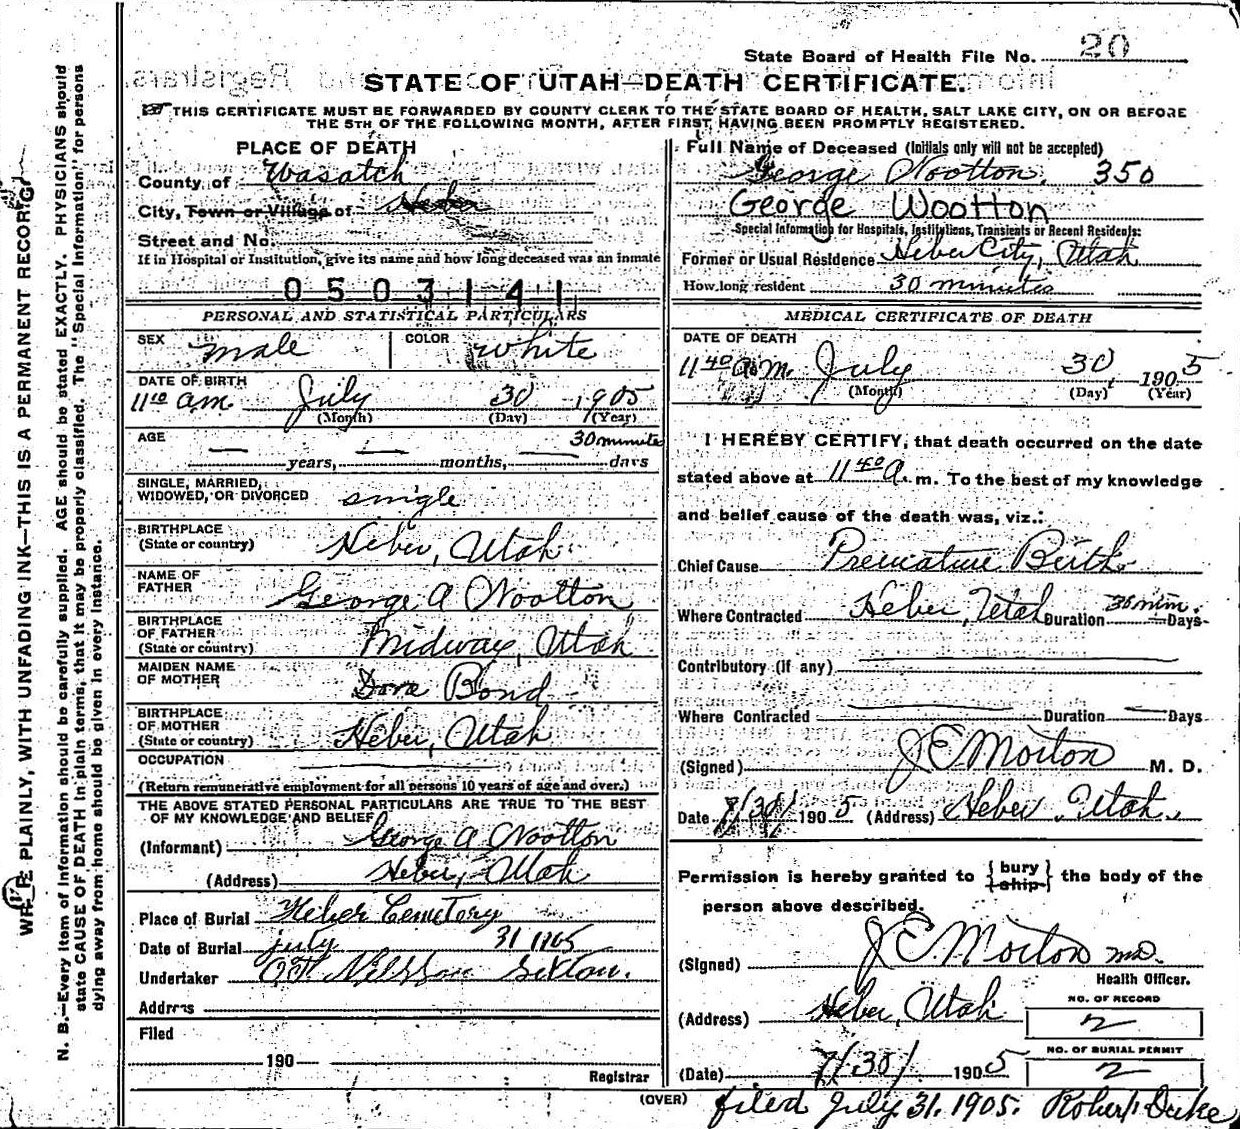 State Board of Health File No. 20
STATE OF UTAH—DEATH CERTIFICATE.
THIS CERTIFICATE MUST BE FORWARDED BY COUNTY CLERK TO THE STATE BOARD OF HEALTH, SALT LAKE CITY, ON OR BEFORE
THE 5TH OF THE FOLLOWING MONTH, AFTER FIRST HAVING BEEN PROMPTLY REGISTERED.
PLACE OF DEATH
County of Wasatch
City, Town or Village of Heber
Street and No.
If in Hospital or Institution, give its name and how long deceased was an inmate
0503141
PERSONAL AND STATISTICAL PARTICULARS
SEX male COLOR white
DATE OF BIRTH
11 10 a.m. July 30 1905
(Month) (Day) (Year)
AGE 30 minutes
— years, — months, — days
SINGLE, MARRIED,
WIDOWED, OR DIVORCED single
BIRTHPLACE
(State or country) Heber, Utah
NAME OF
FATHER George A Wootton
BIRTHPLACE
OF FATHER
(State or country) Midway, Utah
MAIDEN NAME
OF MOTHER Dora Bond
BIRTHPLACE
OF MOTHER
(State or country) Heber, Utah
OCCUPATION
(Return remunerative employment for all persons 10 years of age and over.)
THE ABOVE STATED PERSONAL PARTICULARS ARE TRUE TO THE BEST
OF MY KNOWLEDGE AND BELIEF
(Informant) George A Wootton
(Address) Heber, Utah
Place of Burial Heber Cemetory
Date of Burial july 31 1905
Undertaker Nilsson Sexton.
Address
Filed
190—
Registrar
Full Name of Deceased (Initials only will not be accepted)
George Wootton. 350
George Wootton
Special Information for Hospitals, Institutions, Transients or Recent Residents:
Former or Usual Residence Heber City, Utah
How long resident 30 minutes
MEDICAL CERTIFICATE OF DEATH
DATE OF DEATH
11 40 a.m. July 30 1905
(Month) (Day) (Year)
I HEREBY CERTIFY, that death occurred on the date
stated above at 11 40 a. m. To the best of my knowledge
and belief cause of the death was, viz.:
Chief Cause Premature Birth
Where Contracted Heber, Utah Duration 30 min. Days
Contributory (if any)
Where Contracted Duration — Days
(Signed) J E Morton M. D.
Date 7/30/ 1905 (Address) Heber Utah.
Permission is hereby granted to {bury ship} the body of the
person above described.
(Signed) J E Morton MD.
Health Officer.
(Address) Heber, Utah
NO. OF RECORD
2
NO. OF BURIAL PERMIT
2
(Date) 7/30/ 1905
(OVER) filed July 31. 1905. Robert Duke
PLAINLY, WITH UNFADING INK—THIS IS A PERMANENT RECORD
N. B.—Every item of information should be carefully supplied. AGE should be stated EXACTLY. PHYSICIANS should
state CAUSE OF DEATH in plain terms, that it may be properly classified. The "Special Information" for persons
dying away from home should be given in every instance.